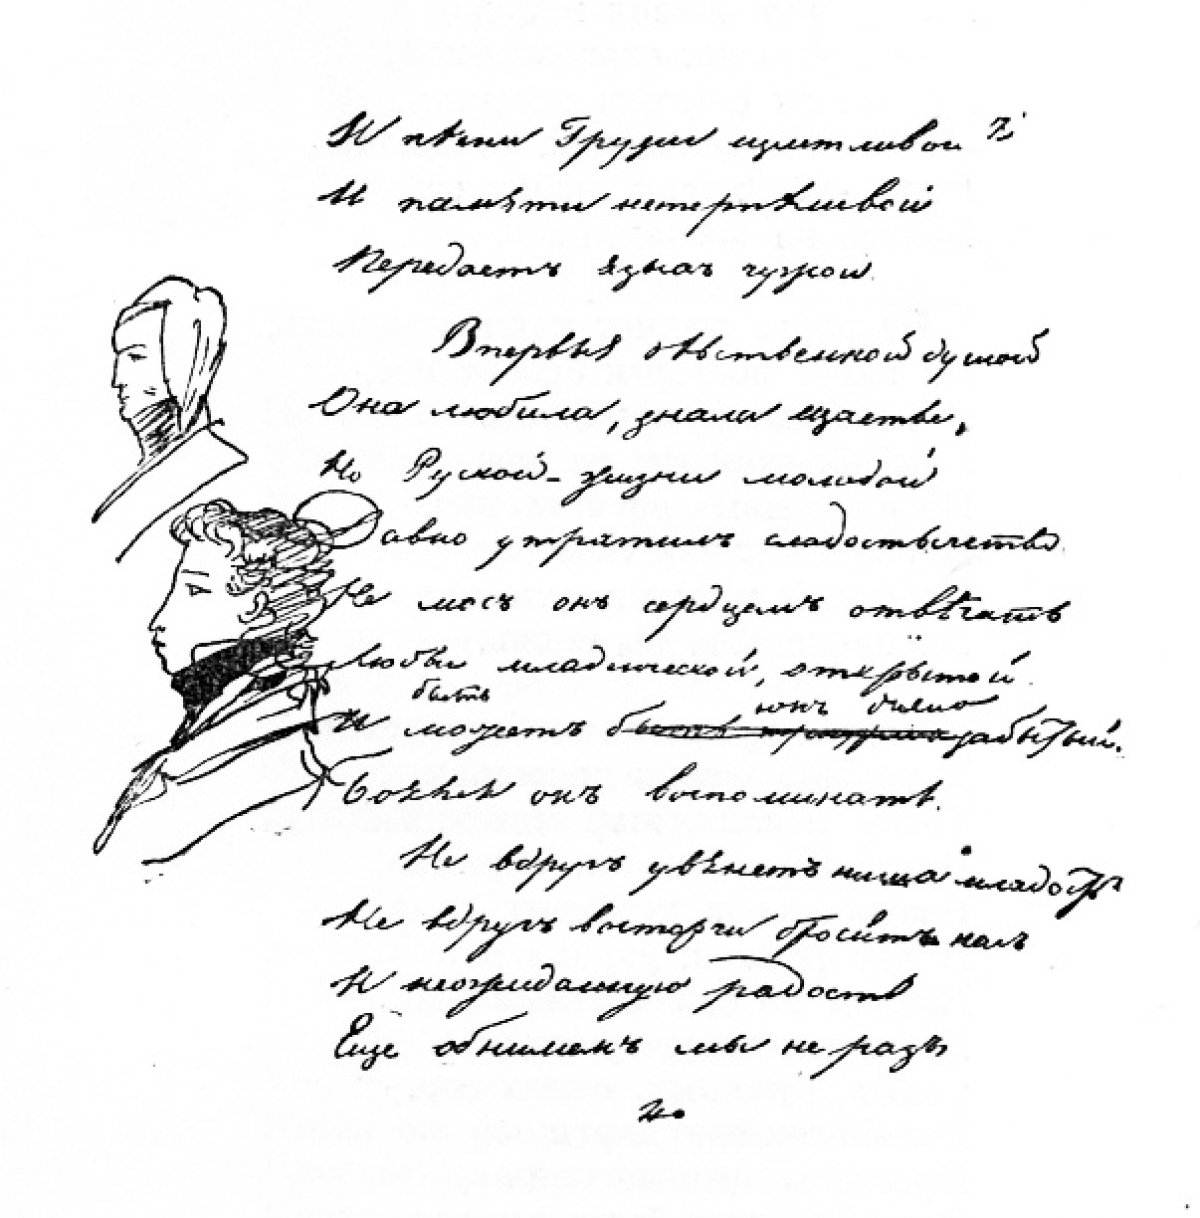 И пѣсни Грузіи щастливой
И памяти нетерпѣливой
Передаетъ языкъ чужой.
Впервыя дѣвственной душой
Она любила, знала щастье,
Но Руской жизни молодой
Давно утратилъ сладострастье
Не могъ онъ сердцемъ отвѣчать
Любви младенческой, открытой
быть сонъ
И можетъ забытый
Боялся онъ воспоминать.
Не вдругъ увянетъ наша младость
Не вдругъ восторги бросятъ насъ
И неожиданную радость
Еще обнимемъ мы не разъ